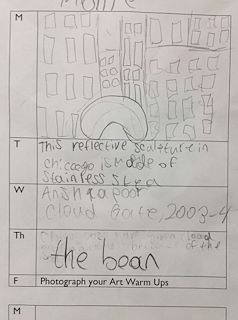 M
T This reflective sculpture in
chiccago is made of
Stainless Steal
W Anish kapoor
Cloud Gate, 2003-4
Th the bean
F Photograph your Art Warm Ups
M